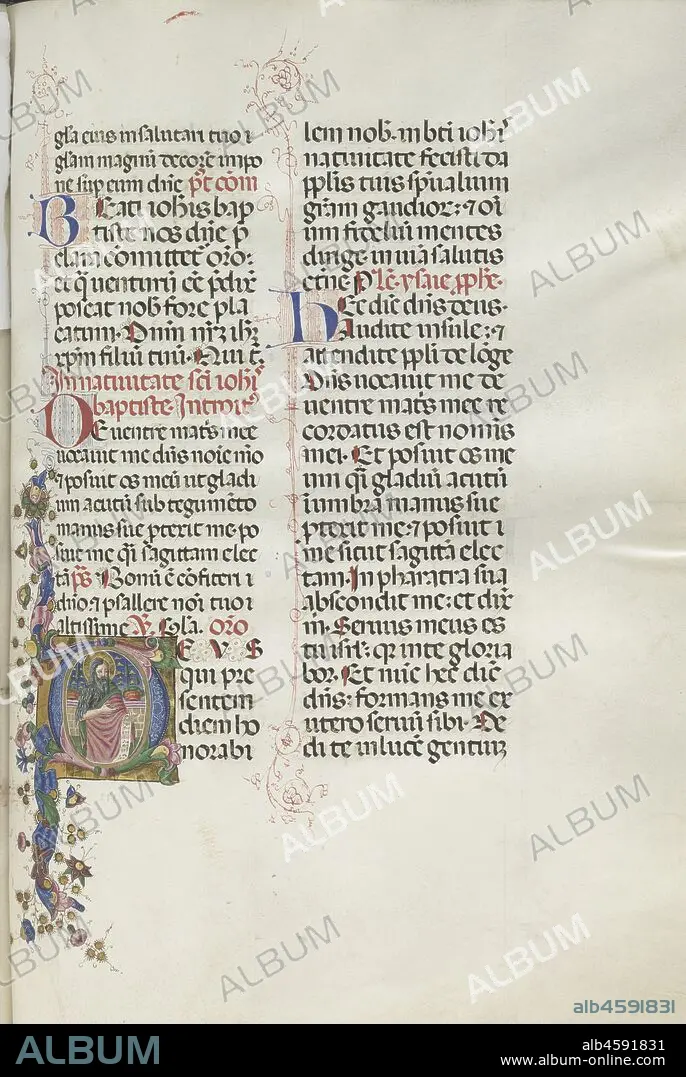 gl̄a eius in salutari tuo ⁊
gl̄am magnū decorē impo
ne sup eum dn̄e p̄t cōm
Beati ioh̄is bap
tiste nos dn̄e p̄
clara comittet̄ orō:
et q̄ uenturū cē p̄dix̄
poscat nob̄ fore pla
catum. Dn̄m nr̄z ih̄z
xp̄m filiū tuū. Qui t̄.
In natiuitate sc̄i ioh̄
baptiste. Introit9
De uentre mat̄s mee
uocauit me dn̄s noīe mō
⁊ posuit os meū ut gladi
um acutū sub tegumēto
manus sue p̄texit me. po
sue me q̄i sagittam elec
tā p̄s Bonū ē cōfiteri ⁊
dn̄o. ⁊ psallere nōi tuo ⁊
altissime V̄. Gl̄a. oro
D E V S
qui pre
sentem
diem ho
norabi
lem nob̄. in bt̄i ioh̄
natiuitate fecisti da
pp̄lis tuis sp̄ualium
grām gaudior̄: ⁊ oī
um fideliū mentes
dirige in uiā salutis
etn̄e P Lc̄. ysaie pphe.
Hec dic̄ dn̄s deus.
Audite insule: ⁊
attendite pp̄li de lōge
Dn̄s uocauit me de
uentre mat̄s mee re
cordatus est nominis
mei. Et posuit os me
um q̄i gladiū acutū
in umbra manus sue
p̄texit me: ⁊ posuit ⁊
me sicut sagittā elec
tam. In pharatra sua
abscondit me: et dix̄
m̄. Seruus meus es
tu isr̄l: q̄z in te gloria
bor. Et nūc hec dic̄
dn̄s: formans me ex
utero seruū sibi. De
di te in lucē gentiuz
ALBUM
alb4591831
ALBUM
alb4591831
www.album-online.com